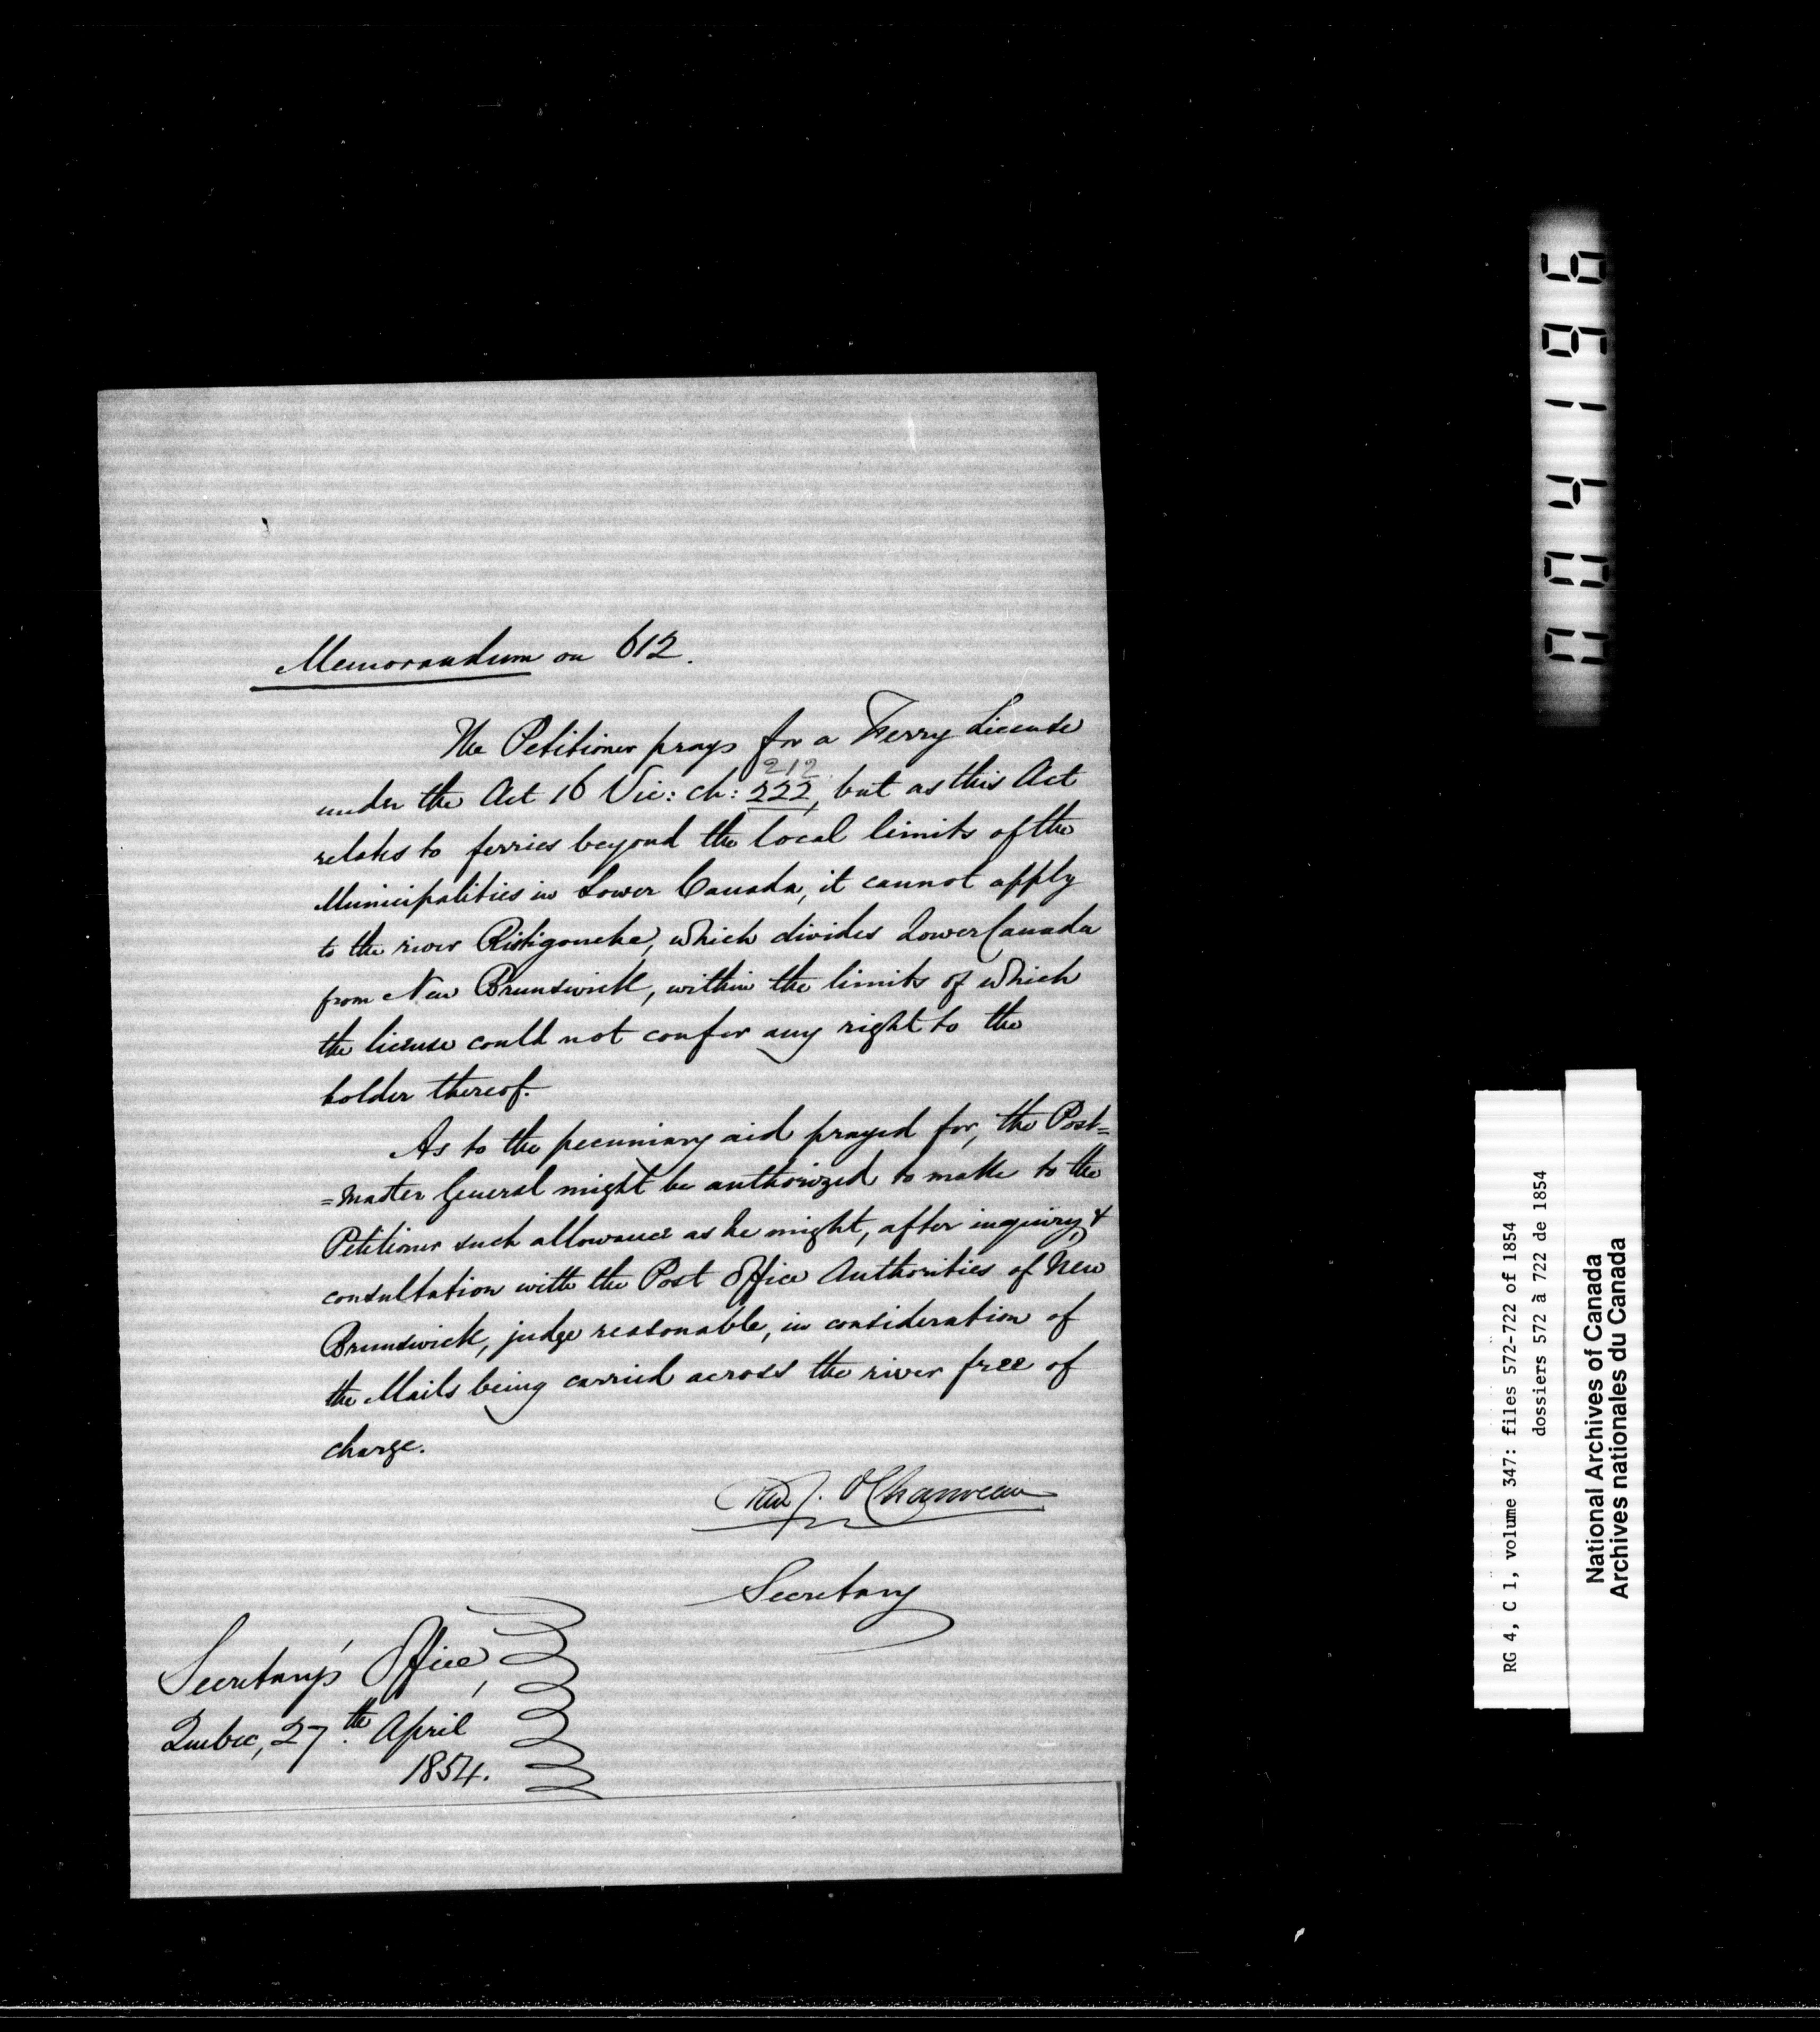 Memorandum on 612.
The Petitioner prays for a Ferry License
212
under the Act 16 Vic: ch: 222, but as this Act
relates to ferries beyond the local limits of the
Municipalities in Lower Canada, it cannot apply
to the river Ristigouche, which divides Lower Canada
from New Brunswick, within the limits of which
the license could not confer any right to the
holder thereof.
As to the pecuniary aid prayed for, the Post=
=master General might be authorized to make to the
Petitioner such allowance as he might, after inquiry, &
consultation with the Post Office Authorities of New
Brunswick, judge reasonable, in consideration of
the Mails being carried across the river free of
charge.
Chauveau
Secretary
Secretary's Office,
Quebec, 27th. April
1854.
004196
RG 4, C 1, volume 347: files 572-722 of 1854
dossiers 572 à 722 de 1854
National Archives of Canada
Archives nationales du Canada